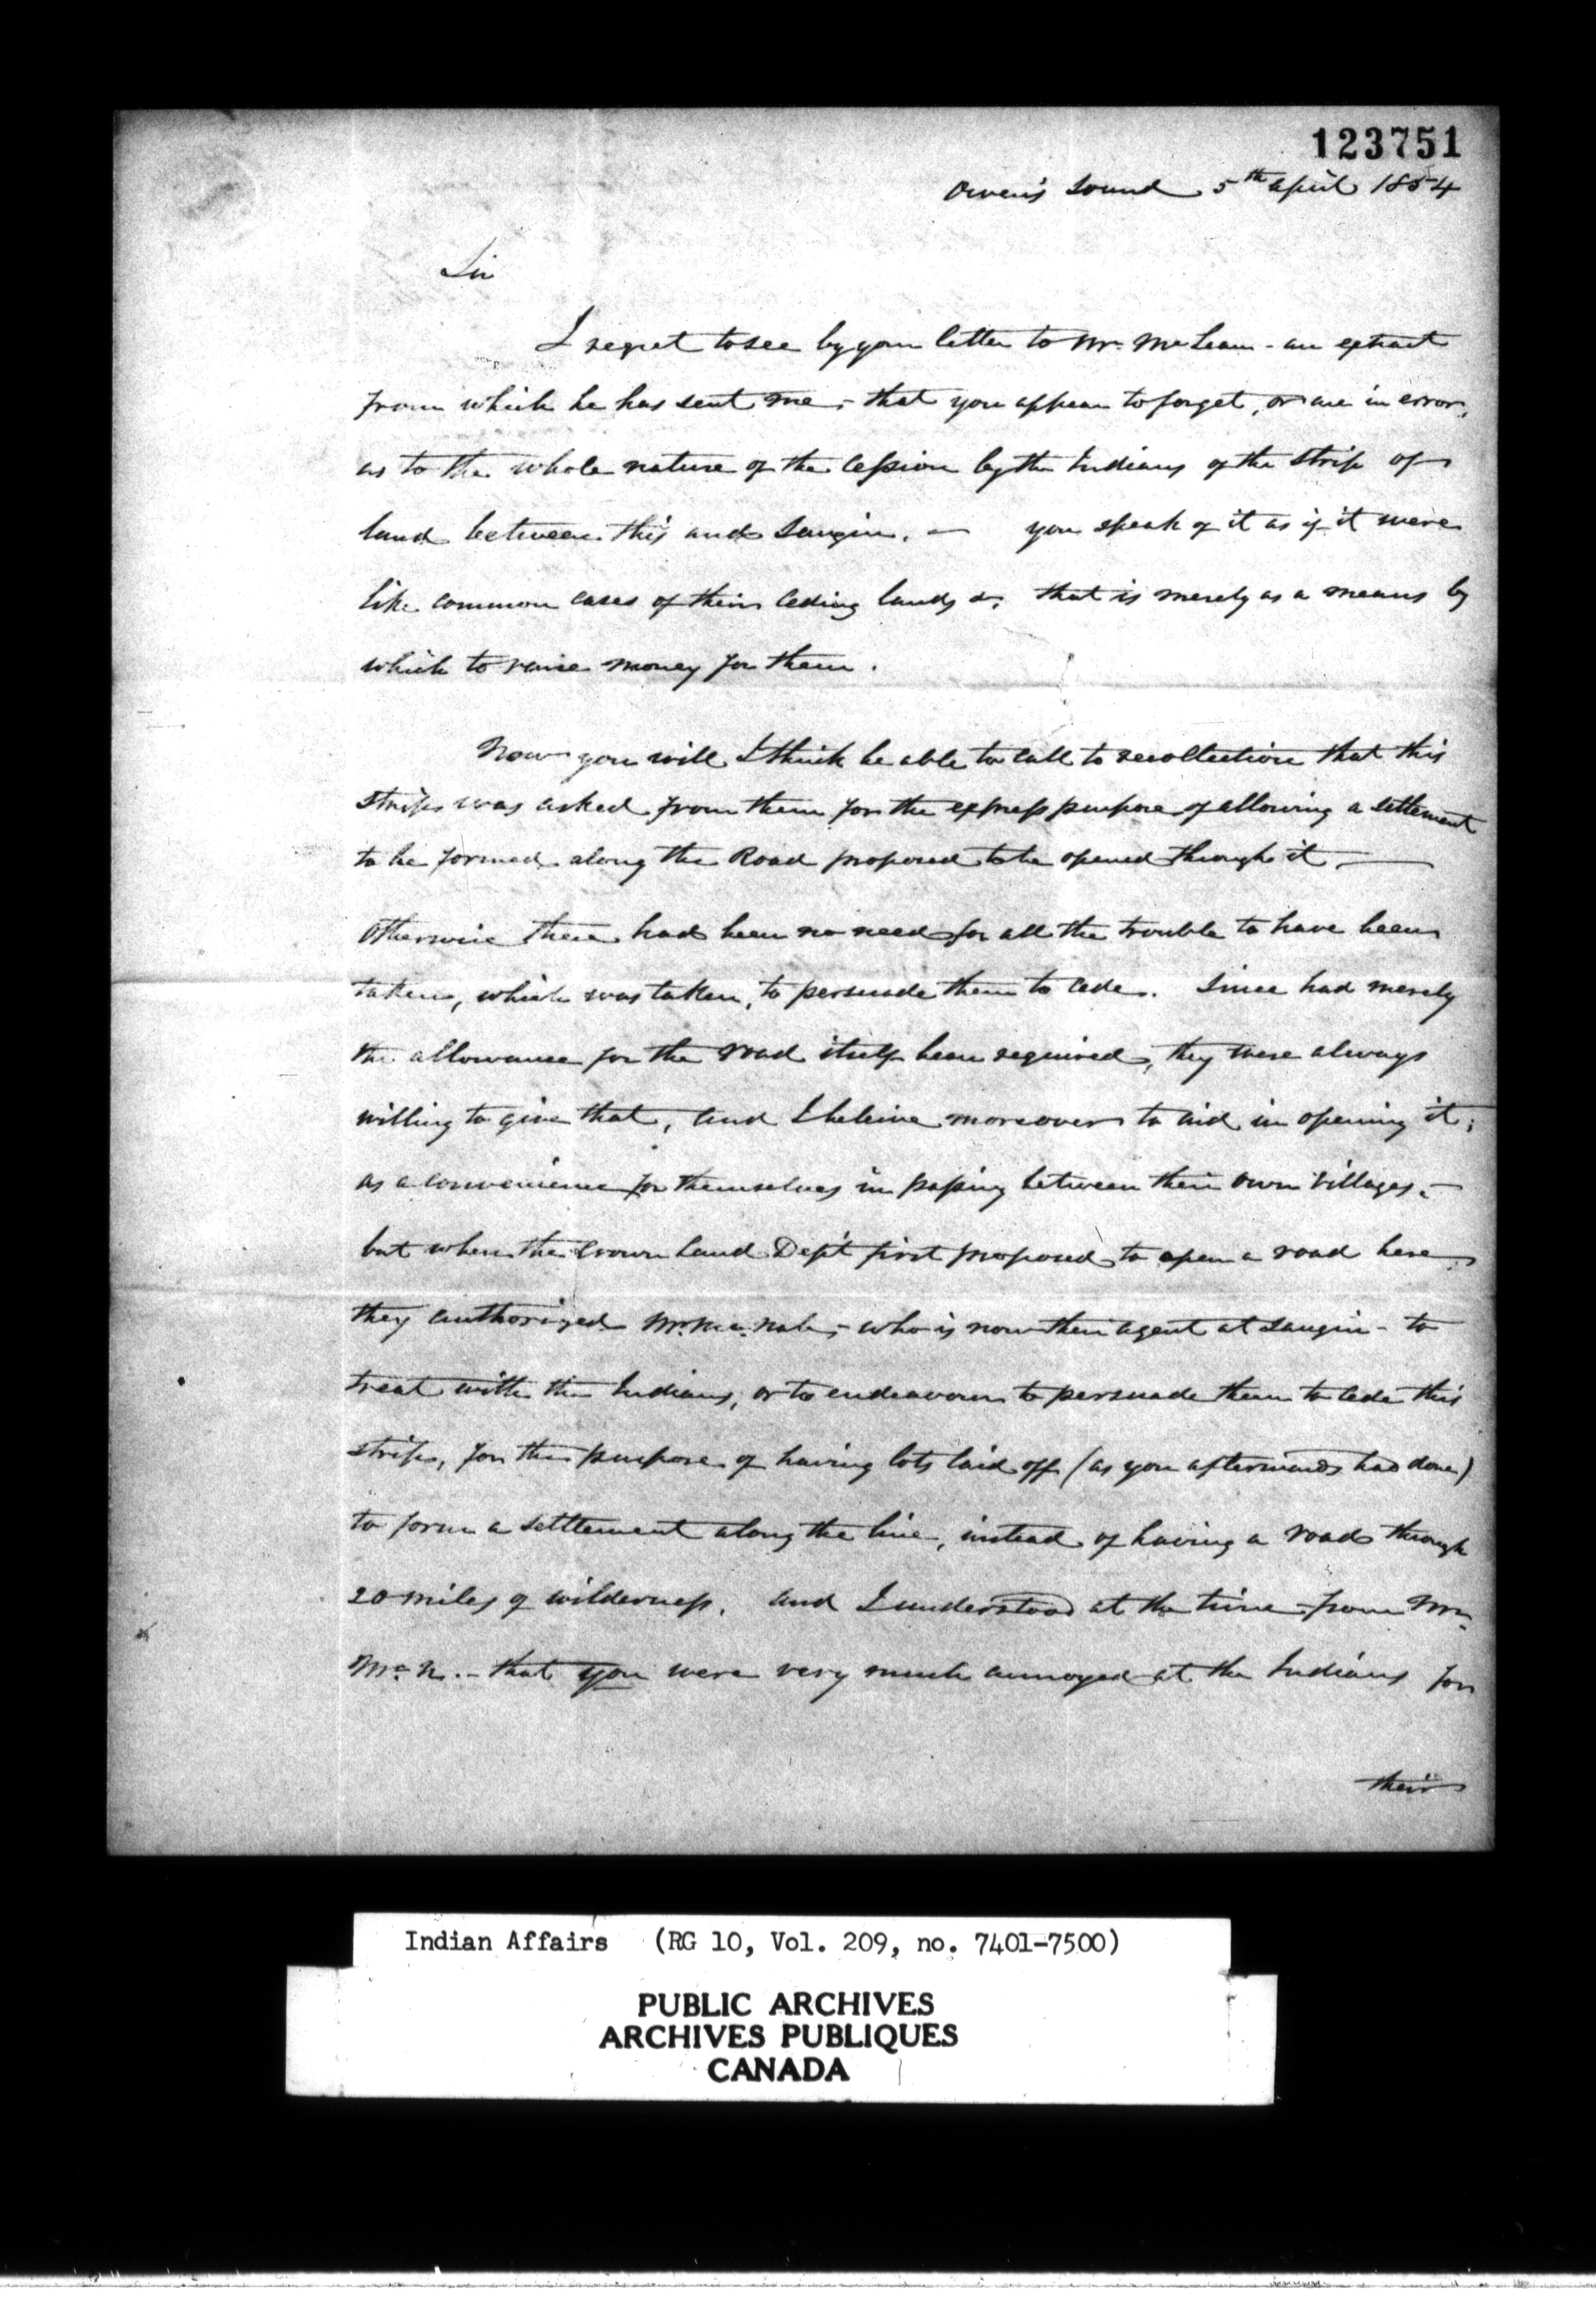 123751
Owen's Sound 5th April 1854
Sir
I regret to see by your letter to Mr. McLean - an extract
from which he has sent me, - that you appear to forget, or are in error,
as to the whole nature of the Cession by the Indians of the strip of
land between this and Saugin. — you speak of it as if it were
like common cases of their Ceding lands &c. that is merely as a means by
which to raise money for them.
Now you will I think be able to call to recollection that this
strip was asked from them for the express purpose of allowing a settlement
to be formed along the Road proposed to be opened through it, —
Otherwise there had been no need for all the trouble to have been
taken, which was taken, to persuade them to Cede. Since had merely
the allowance for the road itself been required, they were always
willing to give that, and I beleive moreover to aid in opening it;
as a convenience for themselves in passing between their own Villages. -
but when the Crown Land Dep't first proposed to open a road here
they authorized Mr. McNab, - who is now their agent at Saugin - to
treat with the Indians, or to endeavour to persuade them to Cede this
strip, for the purpose of having lots laid off (as you afterwards had done)
to form a settlement along the line, instead of having a road through
20 miles of wilderness. and I understood at the time from Mr.
McN. - that you were very much annoyed at the Indians for
their
Indian Affairs (RG 10, Vol. 209, no. 7401-7500)
PUBLIC ARCHIVES
ARCHIVES PUBLIQUES
CANADA